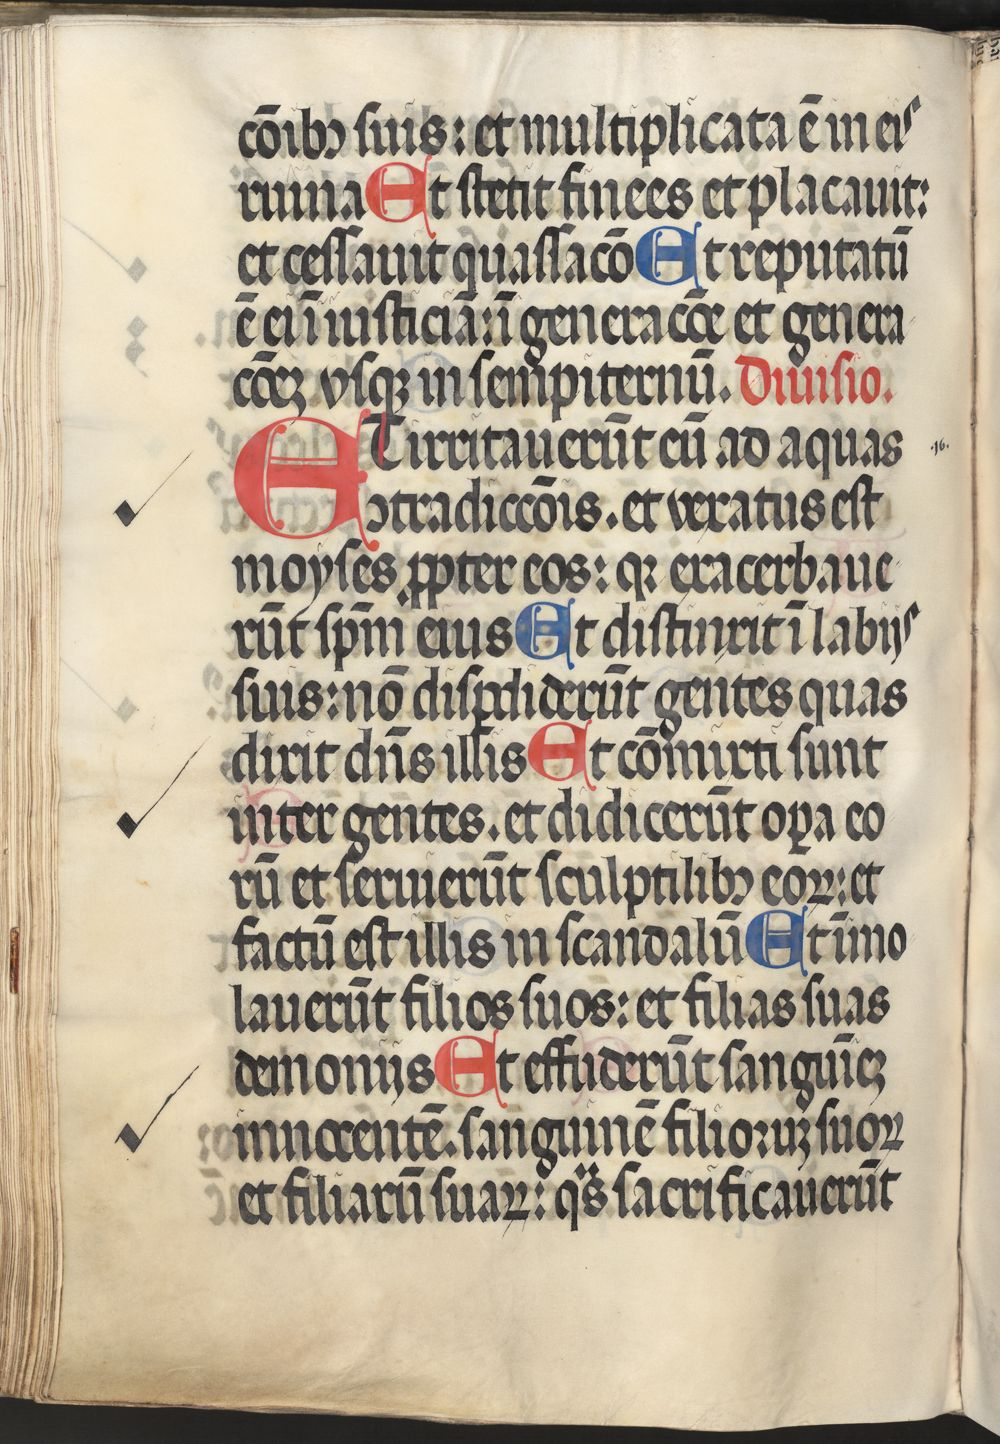 cōibꝫ suis: et multiplicata ē in eis
ruina Et stetit finees et placauit:
et cessauit quassacō Et reputatū
ē ei ī iusticiā: ī generacōe et genera
cōeꝫ vsqꝫ in sempiternū. Diuisio.
ET irritauerūt eū ad aquas .16.
ↄtradiccōis. et vexatus est
moyses ꝓpter eos: qꝛ exacerbaue
rūt spm̄ eius Et distinxit ī labijs
suis: nō disꝑdiderūt gentes quas
dixit dn̄s illis Et cōmixti sunt
inter gentes. et didicerūt oꝑa eo
rū et seruierūt sculptilibꝫ eoꝝ: et
factū est illis in scandalū Et īmo
lauerūt filios suos: et filias suas
demonijs Et effuderūt sanguīeꝫ
innocentē. sanguinē filioruꝫ suoꝝ
et filiarū suaꝝ: qͣs sacrificauerūt